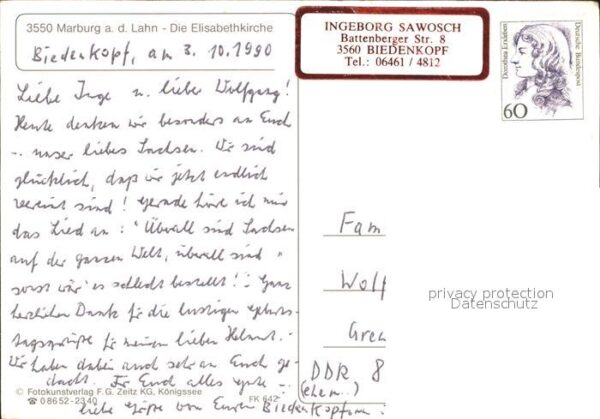 3550 Marburg a. d. Lahn - Die Elisabethkirche
Biedenkopf, am 3. 10. 1990
INGEBORG SAWOSCH
Battenberger Str. 8
3560 BIEDENKOPF
Tel.: 06461 / 4812
Dorothea Erxleben
Deutsche Bundespost
60
Liebe Inge u. lieber Wolfgang!
Heute denken wir besonders an Euch
unser liebes Sachsen. Wir sind
glücklich, daß wir jetzt endlich
vereint sind! Gerade höre ich mir
das Lied an: "Überall sind Sachsen
auf der ganzen Welt, überall sind"
sonst wär' es schlecht bestellt! Ganz
herzlichen Dank für die lustigen Geburts-
tagsgrüße für meinen lieben Helmut.
Wir haben dabei auch sehr an Euch ge-
dacht. Für Euch alles gute
liebe Grüße von Euren Biedenkopfern!
Fam
Wolf
Gren
DDR 8
(ehem.)
privacy protection
Datenschutz
© Fotokunstverlag F. G. Zeitz KG, Königssee
☎ 0 86 52 - 23 40
FK 642